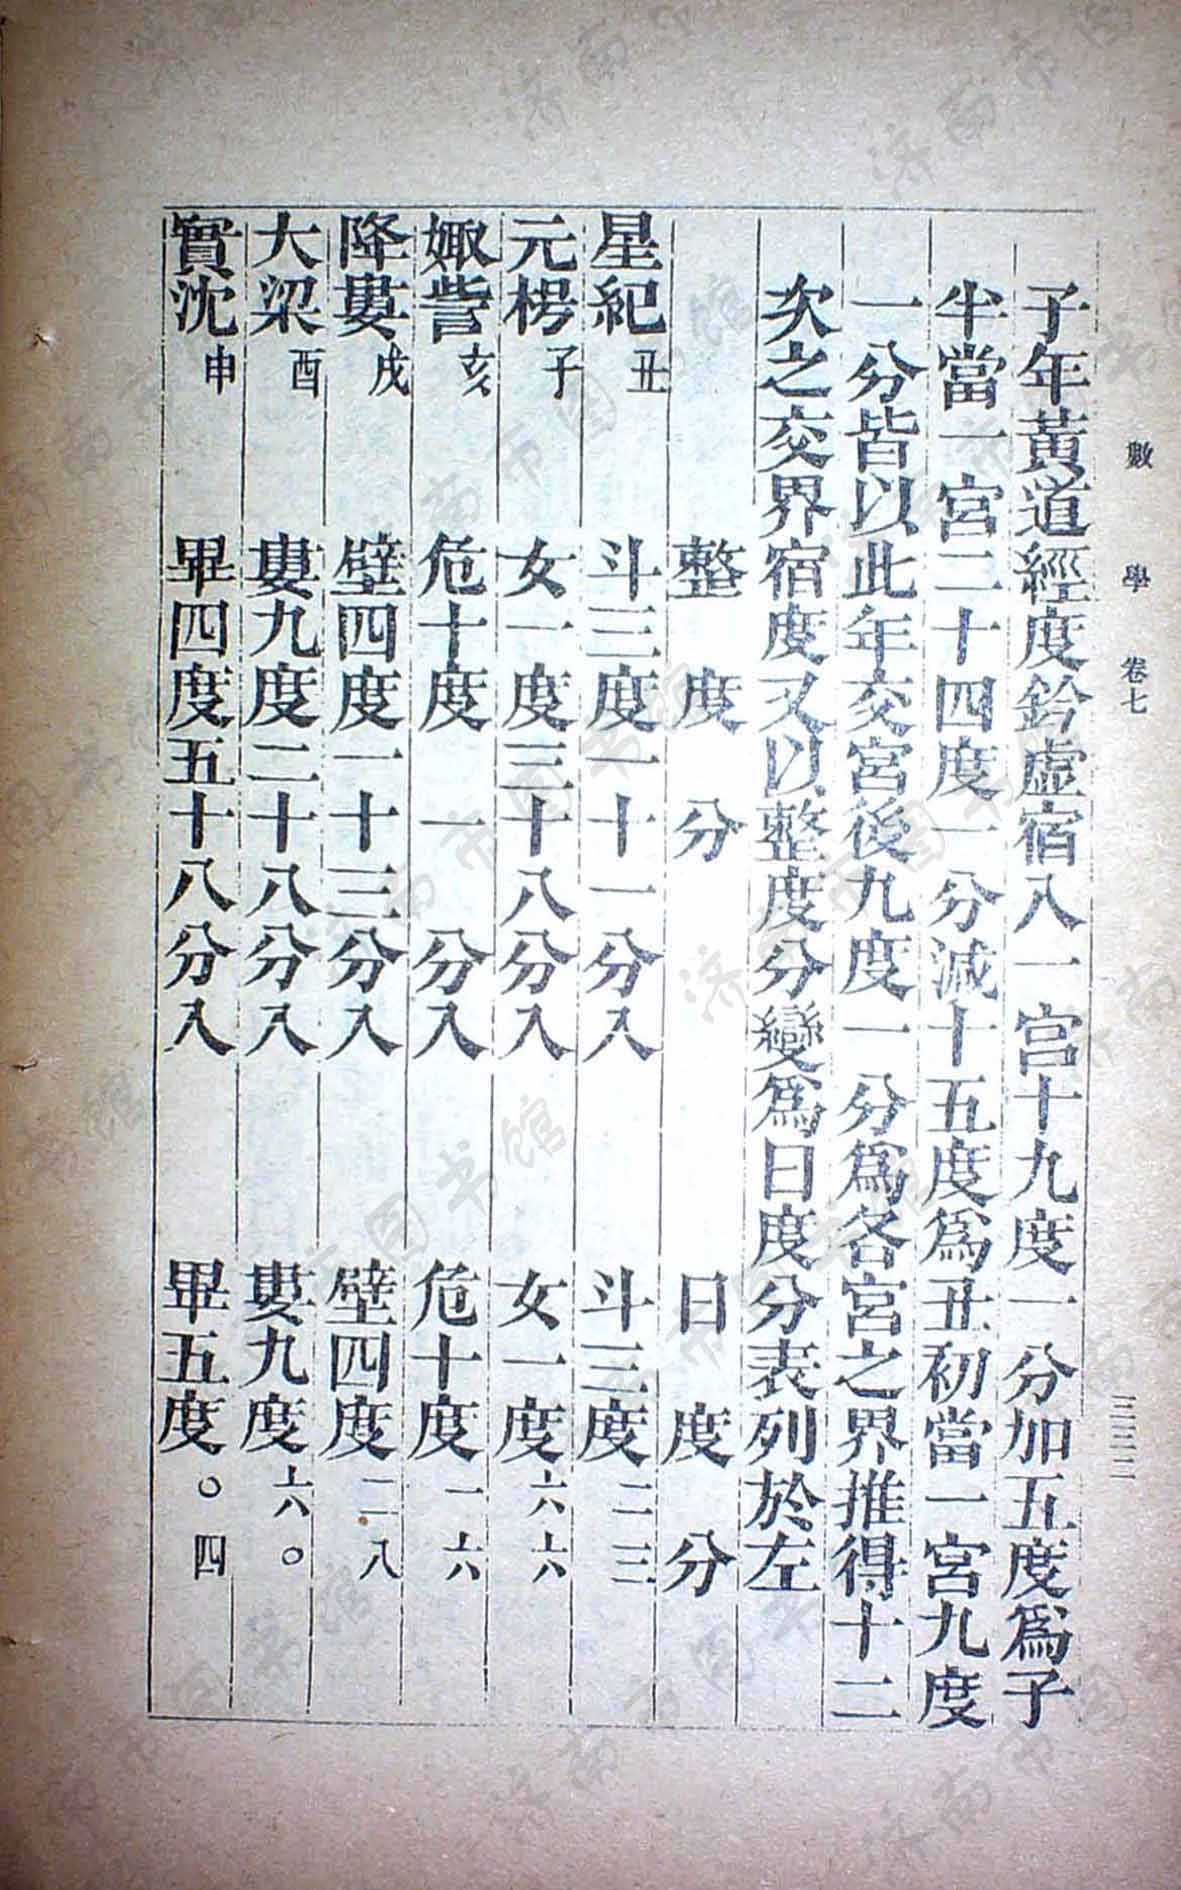 數學 卷七 三三二
子年黃道經度鈐虛宿八一宮十九度一分加五度爲子
半當一宮二十四度一分減十五度爲丑初當一宮九度
一分皆以此年交宮後九度一分爲各宮之界推得十二
次之交界宿度又以整度分變爲日度分表列於左
整度分 日度分
星紀丑 斗三度一十一分入 斗三度二三
元枵子 女一度三十八分入 女一度六六
娵訾亥 危十度一分入 危十度一六
降婁戌 壁四度一十三分入 壁四度二八
大梁酉 婁九度二十八分入 婁九度六〇
實沈申 畢四度五十八分入 畢五度〇四
济南市图书馆